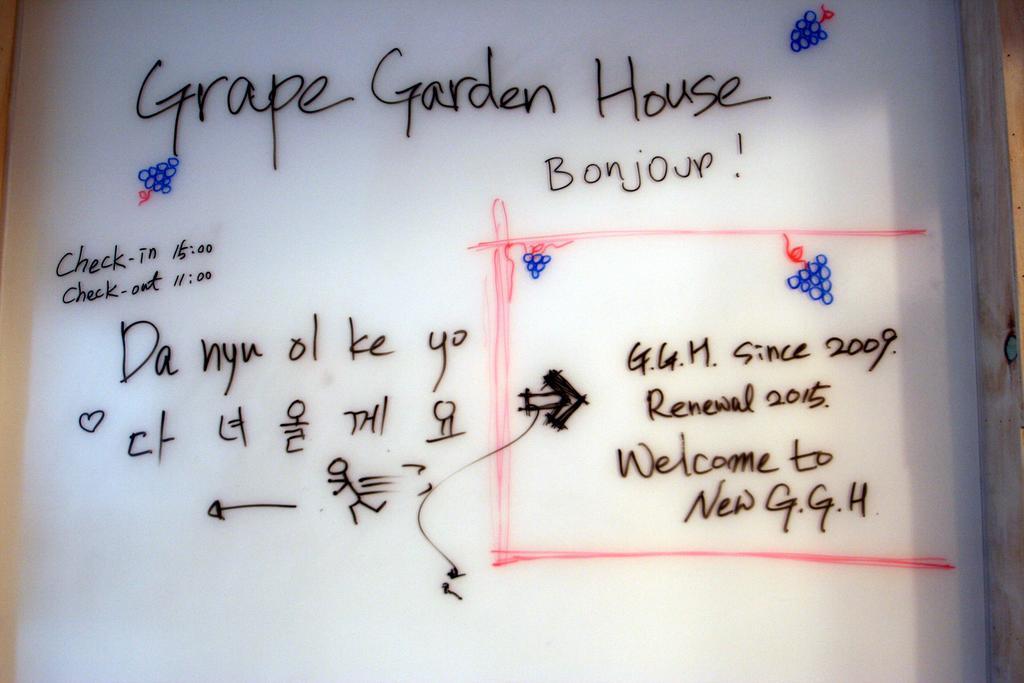 Grape Garden House
Bonjour!
Check-in 15:00
Check-out 11:00
Da nyu ol ke yo
다 녀 올 게 요
G.G.H. since 2009.
Renewal 2015.
Welcome to
New G.G.H